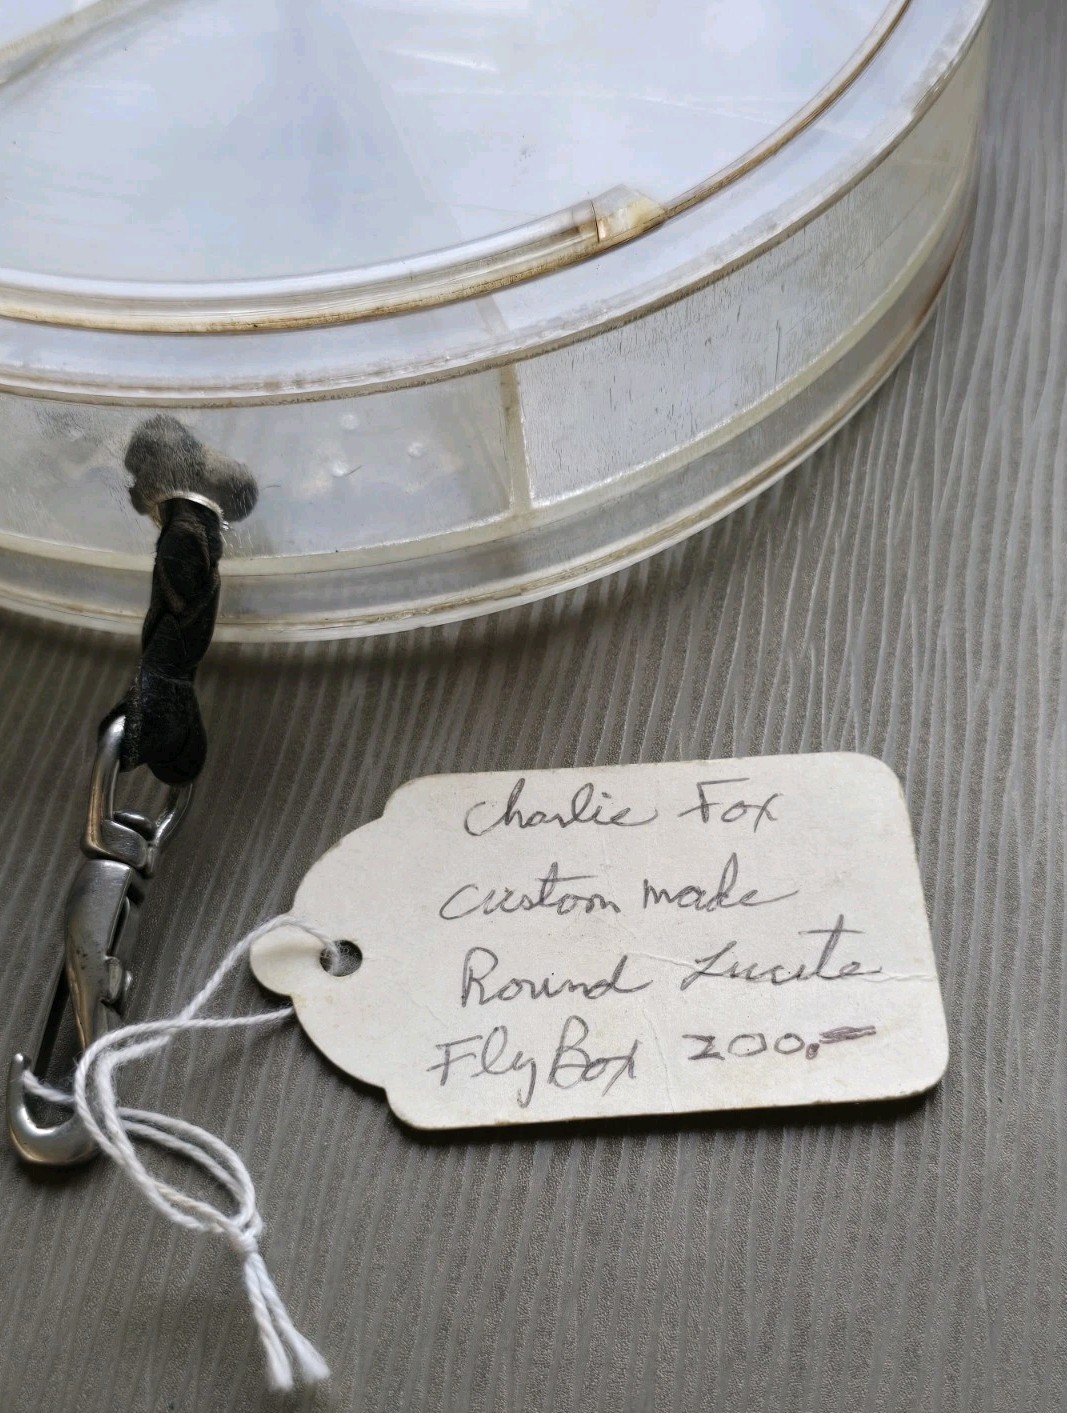 Charlie Fox
custom made
Round Lucite
Fly Box 200.-